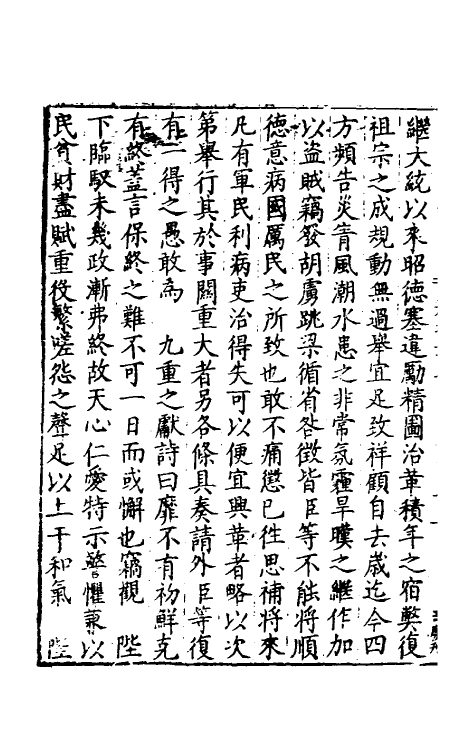 繼大統以來昭德塞違勵精圖治革積年之宿獘復
祖宗之成規動無過舉宜足致祥顧自去歲迄今四
方頻告災眚風潮水患之非常氛霾旱暵之繼作加
以盗賊竊發胡虜跳梁循省咎徵皆臣等不能將順
德意病國厲民之所致也敢不痛懲已徃思補將來
凡有軍民利病吏治得失可以便宜興革者略以次
第舉行其於事關重大者另各條具奏請外臣等復
有一得之愚敢為　九重之獻詩曰靡不有初鮮克
有終葢言保終之難不可一日而或懈也竊觀　陛
下臨馭未幾政漸弗終故天心仁愛特示警懼兼以
民貧財盡賦重役繁嗟怨之聲足以上干和氣　陛